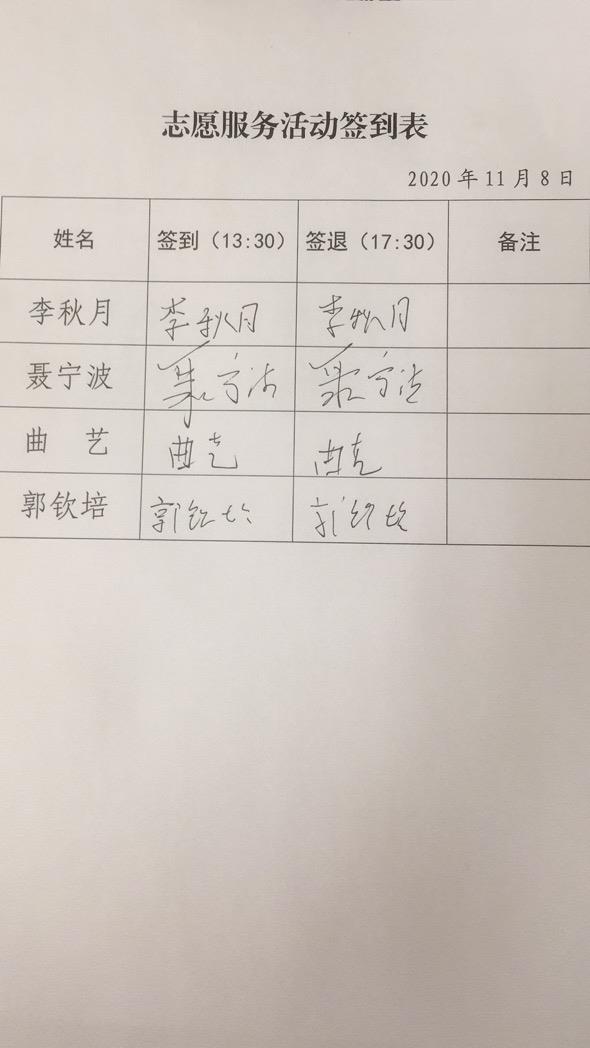 志愿服务活动签到表
2020年11月8日
姓名 签到（13:30） 签退（17:30） 备注
李秋月 李秋月 李秋月
聂宁波 聂宁波 聂宁波
曲 艺 曲艺 曲艺
郭钦培 郭钦培 郭钦培